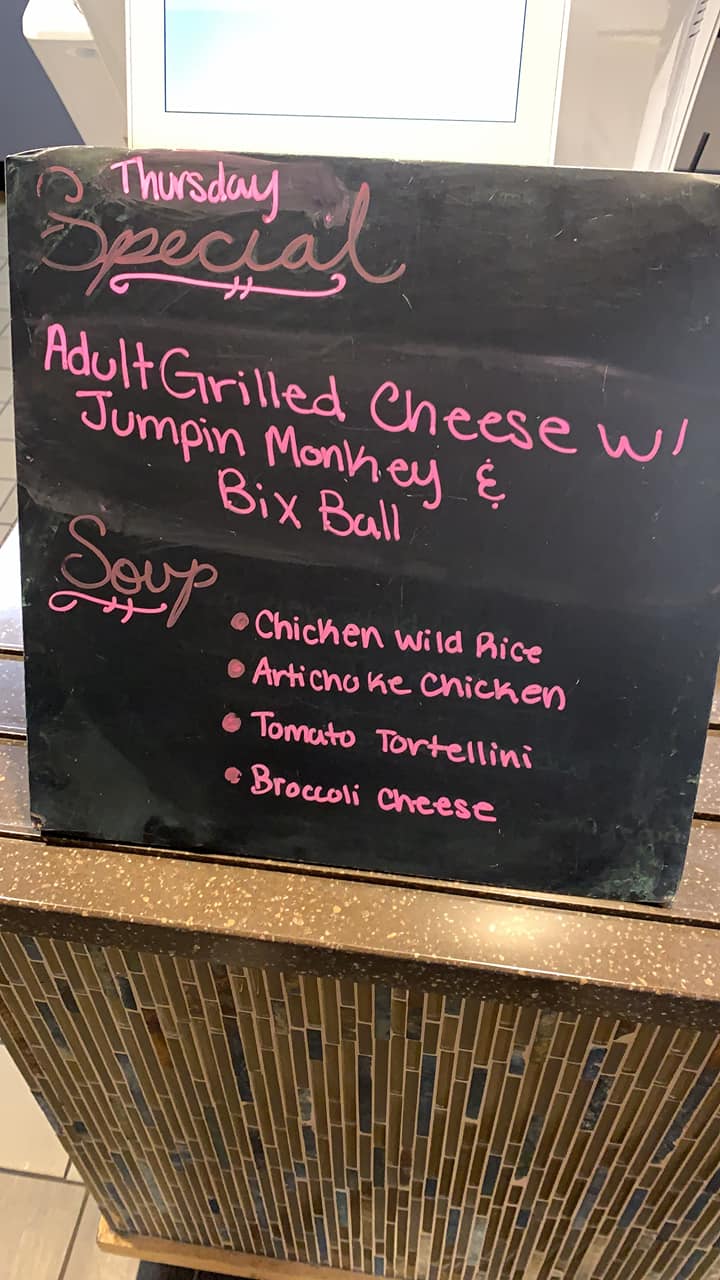 Thursday
Special
Adult Grilled Cheese w/
Jumpin Monkey &
Bix Ball
Soup
• Chicken Wild Rice
• Artichoke Chicken
• Tomato Tortellini
• Broccoli Cheese